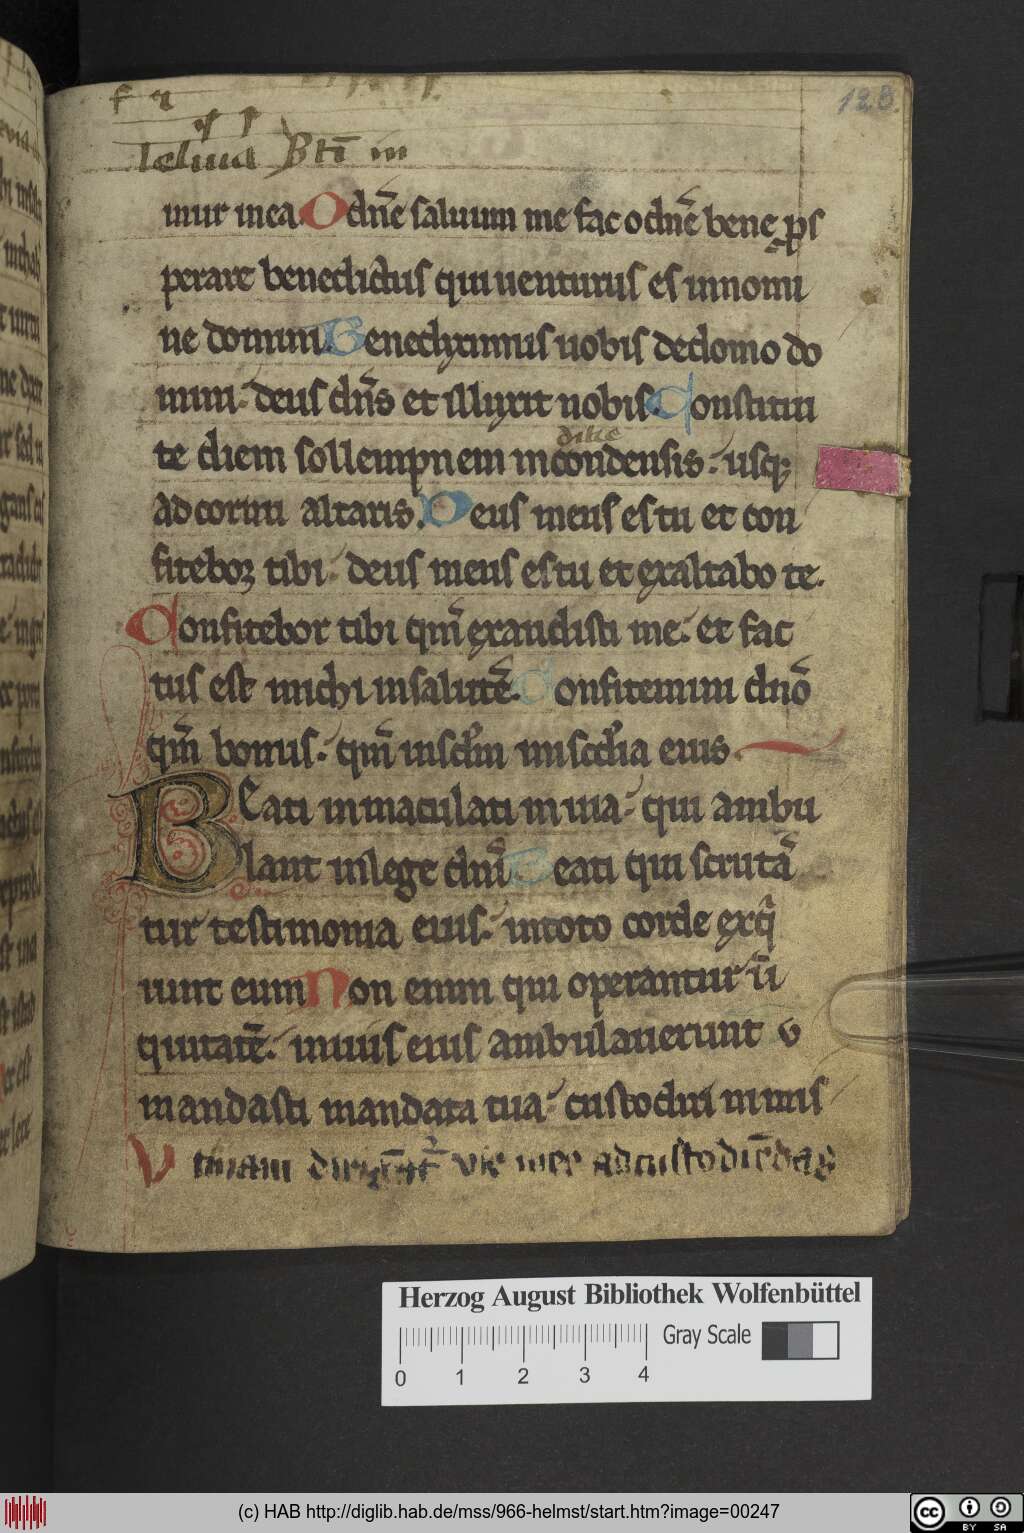 128.
f
leluia Btī in
mur in ea. O dn̄e saluum me fac o dn̄e bene ꝓs
perare benedictus qui uenturus es in nomi
ne domini. Benediximus uobis de domo do
mini. deus dn̄s et illuxit nobis. Constitui
te diem sollempnem in condensis. usq;
ad cornu altaris. Deus meus es tu et con
fiteboꝛ tibi. deus meus es tu et exaltabo te.
Confitebor tibi qm̄ exaudisti me. et fac
tus est michi in salutē. Confitemini dn̄o
qm̄ bonus. qm̄ in sc̄lm misc̄dia eius.
BEati inmaculati in uia. qui ambu
lant in lege dn̄i. Beati qui scrutā
tur testimonia eius. in toto corde exq̄i
runt eum Non enim qui operantur ī
iquitatē. in uiis eius ambulauerunt v
mandasti mandata tua. custodiri nimis
Vtinam dirigāt̄ vie mee ad custodiēdas
Herzog August Bibliothek Wolfenbüttel
Gray Scale
0 1 2 3 4
(c) HAB http://diglib.hab.de/mss/966-helmst/start.htm?image=00247
cc BY SA